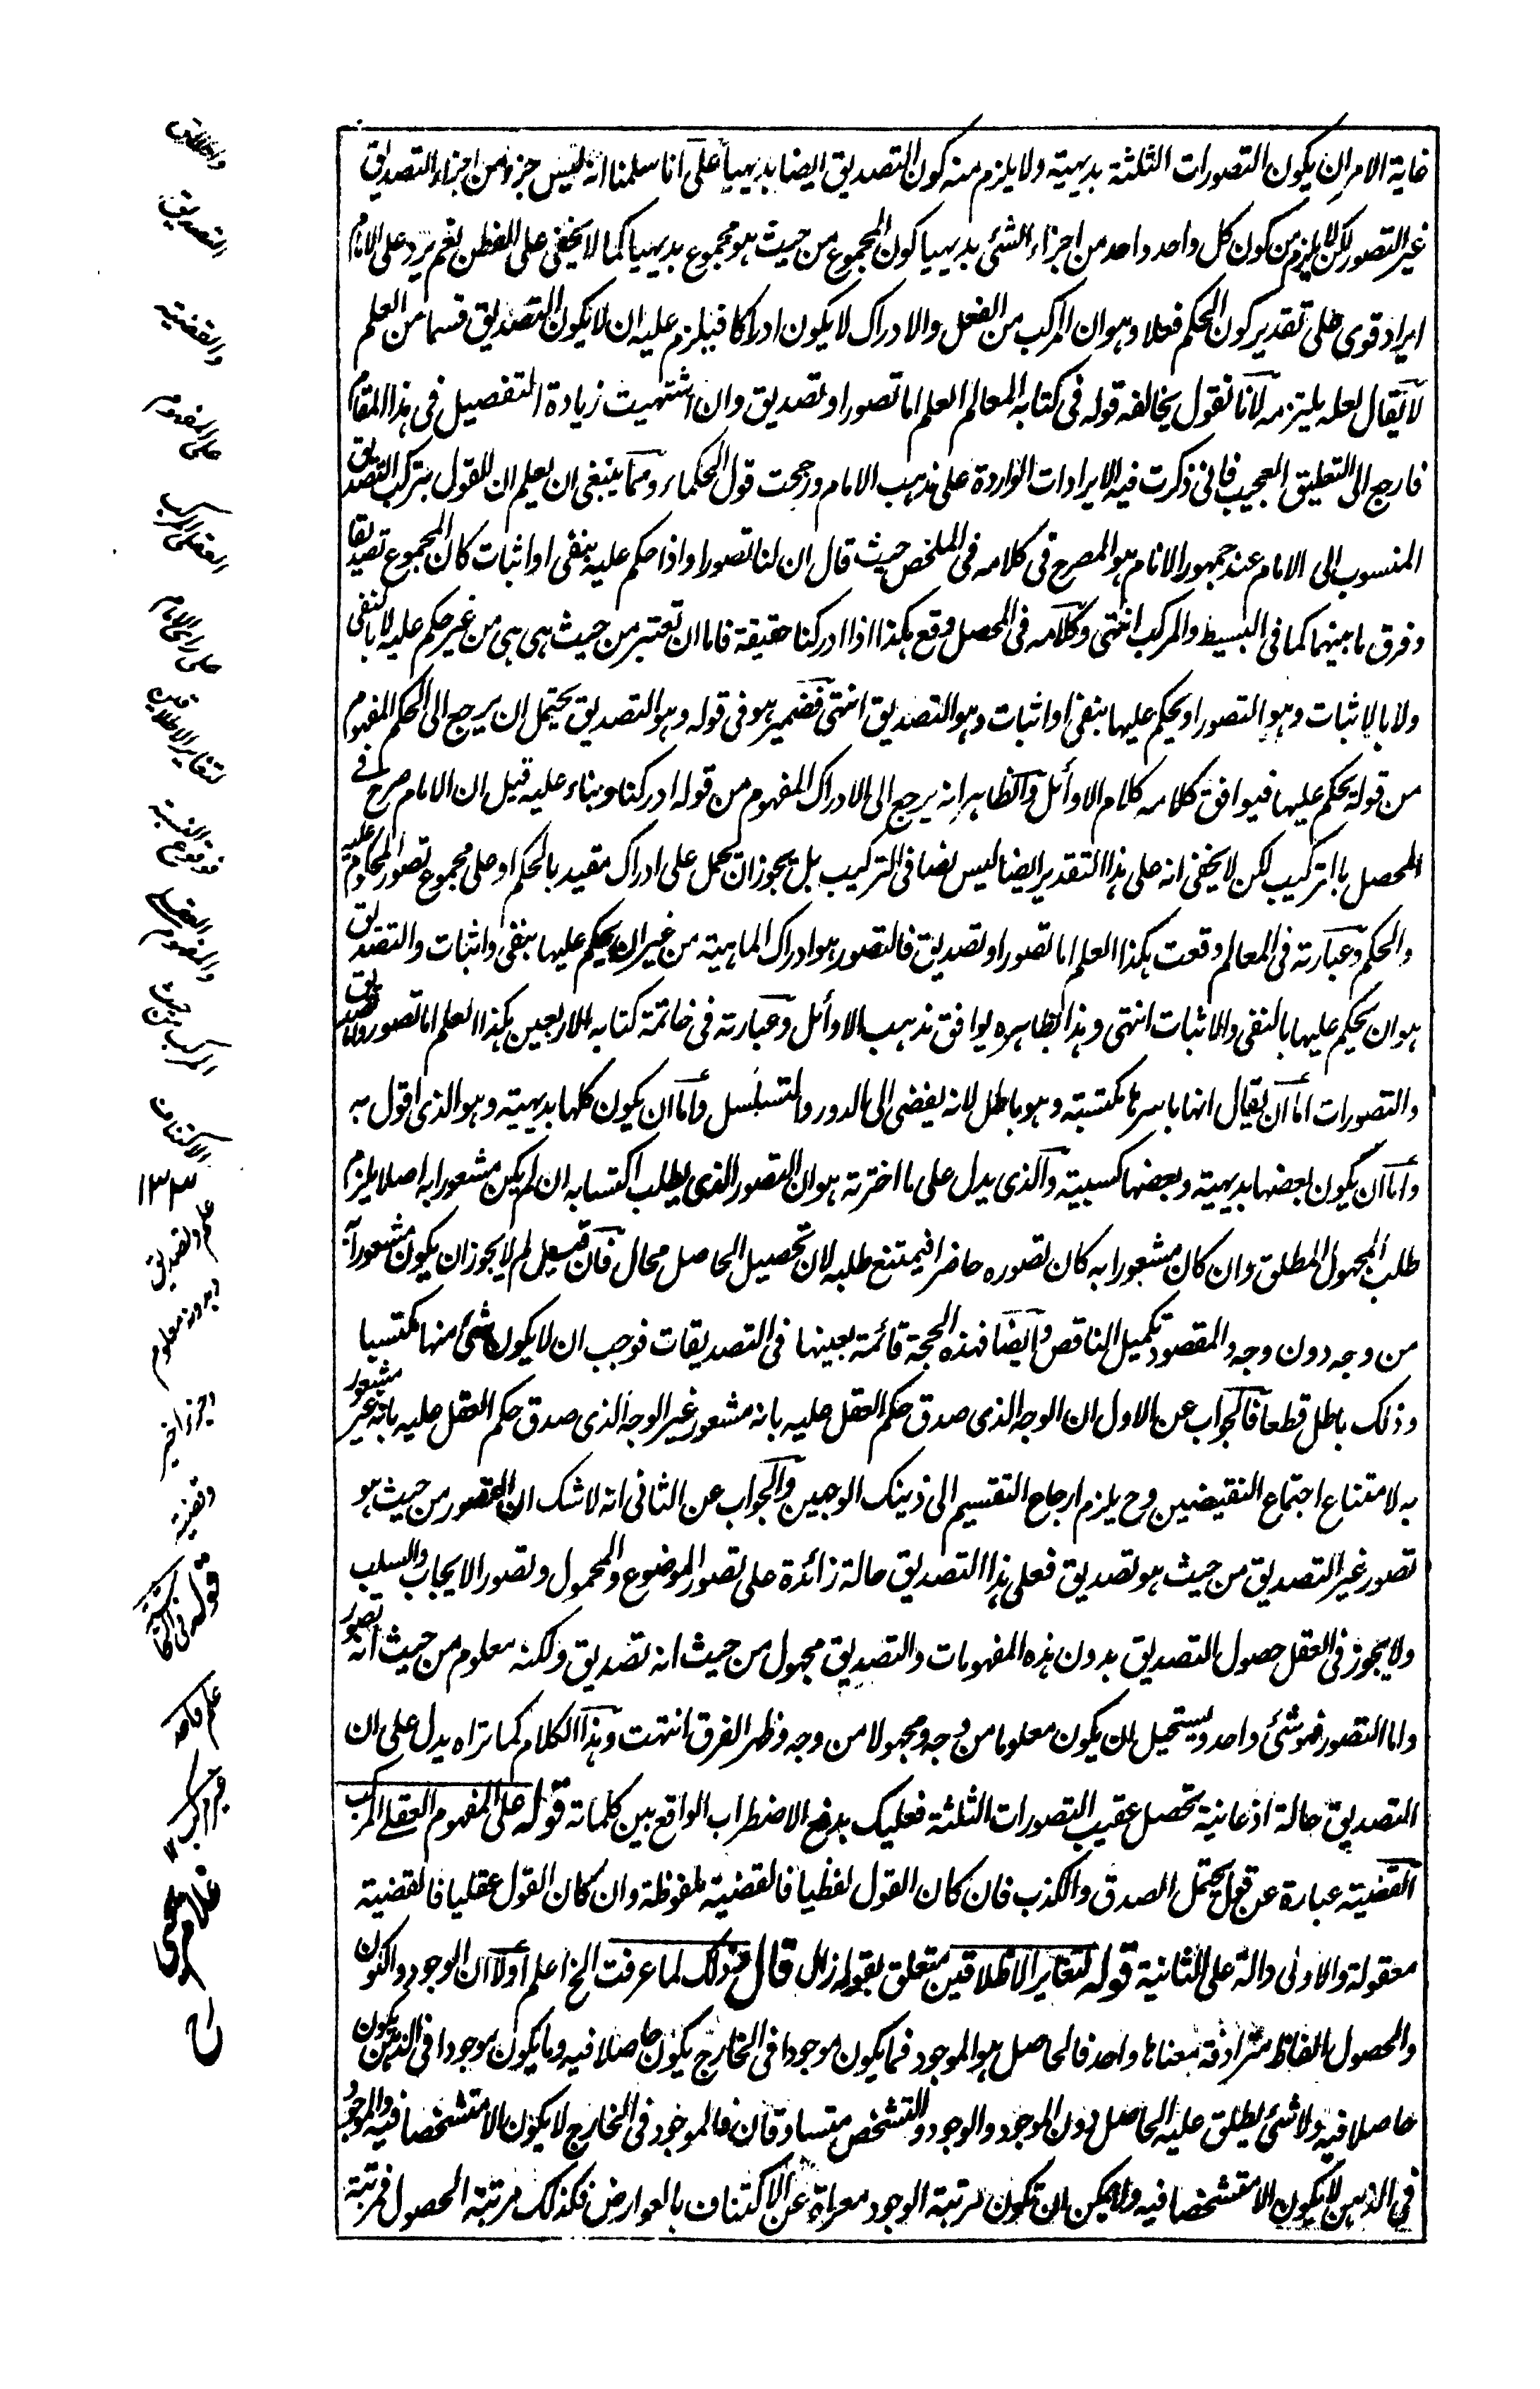 غاية الامر ان يكون التصورات الثلثة بديهية ولا يلزم منه كون التصديق ايضا بديهيا على انا سلمنا انه ليس جزء من اجزاء التصديق
غير التصور لكن لا يلزم من كون كل واحد واحد من اجزاء الشئ بديهيا كون المجموع من حيث هو مجموع بديهيا كما لا يخفى على الفطن نعم يرد على الامام
ايراد قوى على تقدير كون الحكم فعلا وهو ان المركب من الفعل والادراك لا يكون ادراكا فيلزم عليه ان لا يكون التصديق قسما من العلم
لا يقال لعله يلتزمه لانا نقول يخالفه قوله فى كتابه المعالم العلم اما تصور او تصديق وان اشتهيت زيادة التفصيل فى هذا المقام
فارجع الى التعليق العجيب فانى ذكرت فيه الايرادات الواردة على مذهب الامام ورجحت قول الحكماء ومما ينبغى ان يعلم ان القول بتركب التصديق
المنسوب الى الامام عند جمهور الانام هو المصرح فى كلامه فى الملخص حيث قال ان لنا تصورا واذا حكم عليه بنفى او اثبات كان المجموع تصديقا
وفرق ما بينهما كما فى البسيط والمركب انتهى وكلامه فى المحصل وقع هكذا اذا ادركنا حقيقة فاما ان تعتبر من حيث هى هى من غير حكم عليه لا بالنفى
ولا بالاثبات وهو التصور او يحكم عليها بنفى او اثبات وهو التصديق انتهى فضمير هو فى قوله وهو التصديق يحتمل ان يرجع الى الحكم المفهوم
من قوله يحكم عليها فيوافق كلامه كلام الاوائل والظاهر انه يرجع الى الادراك المفهوم من قوله ادركنا وبناء عليه قيل ان الامام صرح فى
المحصل بالتركيب لكن لا يخفى انه على هذا التقدير ايضا ليس نصا فى التركيب بل يجوز ان يحمل على ادراك مقيد بالحكم او على مجموع تصور المحكوم عليه
والحكم وعبارته فى المعالم وقعت هكذا العلم اما تصور او تصديق فالتصور هو ادراك الماهية من غير ان يحكم عليها بنفى واثبات والتصديق
هو ان يحكم عليها بالنفى والاثبات انتهى وهذا بظاهره يوافق مذهب الاوائل وعبارته فى خاتمة كتابه الاربعين هكذا العلم اما تصور واما تصديق
والتصورات اما ان يقال انها باسرها مكتسبة وهو باطل لانه يفضى الى الدور والتسلسل واما ان يكون كلها بديهية وهو الذى اقول به
واما ان يكون بعضها بديهية وبعضها كسبية والذى يدل على ما اخترته هو ان التصور الذى يطلب اكتسابه ان لم يكن مشعورا به اصلا يلزم
طلب المجهول المطلق وان كان مشعورا به كان تصوره حاضرا فيمتنع طلبه لان تحصيل الحاصل محال فان قيل لم لا يجوز ان يكون مشعورا به
من وجه دون وجه والمقصود تكميل الناقص وايضا فهذه الحجة قائمة بعينها فى التصديقات فوجب ان لا يكون شئ منها مكتسبا
وذلك باطل قطعا فالجواب عن الاول ان الوجه الذى صدق حكم العقل عليه بانه مشعور غير الوجه الذى صدق حكم العقل عليه بانه غير مشعور
به لامتناع اجتماع النقيضين وح يلزم ارجاع التقسيم الى ذينك الوجهين والجواب عن الثانى انه لا شك ان التصور من حيث هو
تصور غير التصديق من حيث هو تصديق فعلى هذا التصديق حالة زائدة على تصور الموضوع والمحمول وتصور الايجاب والسلب
ولا يجوز فى العقل حصول التصديق بدون هذه المفهومات والتصديق مجهول من حيث انه تصديق ولكنه معلوم من حيث انه تصور
واما التصور فهو شئ واحد ويستحيل ان يكون معلوما من وجه ومجهولا من وجه وظهر الفرق انتهت وهذا الكلام كما تراه يدل على ان
التصديق حالة اذعانية تحصل عقيب التصورات الثلثة فعليك بدفع الاضطراب الواقع بين كلماته قوله على المفهوم العقلى المركب
القضية عبارة عن قول يحتمل الصدق والكذب فان كان القول لفظيا فالقضية ملفوظة وان كان القول عقليا فالقضية
معقولة والاولى دالة على الثانية قوله لتغاير الاطلاقين متعلق بقوله زال قال عندك لما عرفت الخ اعلم اولا ان الوجود والكون
والحصول الفاظ مترادفة معناها واحد فالحاصل هو الموجود فما يكون موجودا فى الخارج يكون حاصلا فيه وما يكون موجودا فى الذهن يكون
حاصلا فيه ولا شئ يطلق عليه الحاصل دون الموجود والوجود والتشخص متساوقان فالموجود فى الخارج لا يكون الا متشخصا فيه والموجود
فى الذهن لا يكون الا متشخصا فيه ولا يمكن ان تكون مرتبة الوجود معراة عن الاكتناف بالعوارض فكذلك مرتبة الحصول فمرتبة
واطلاق
التصديق
والقضية
على المفهوم
العقلى المركب
على راى الامام
لتغاير الاطلاقين
المركب من حيث
الاكتناف
١٢ منه
علم وتصديق
وجزء اخير
وقضية
قوله فى الحاشية